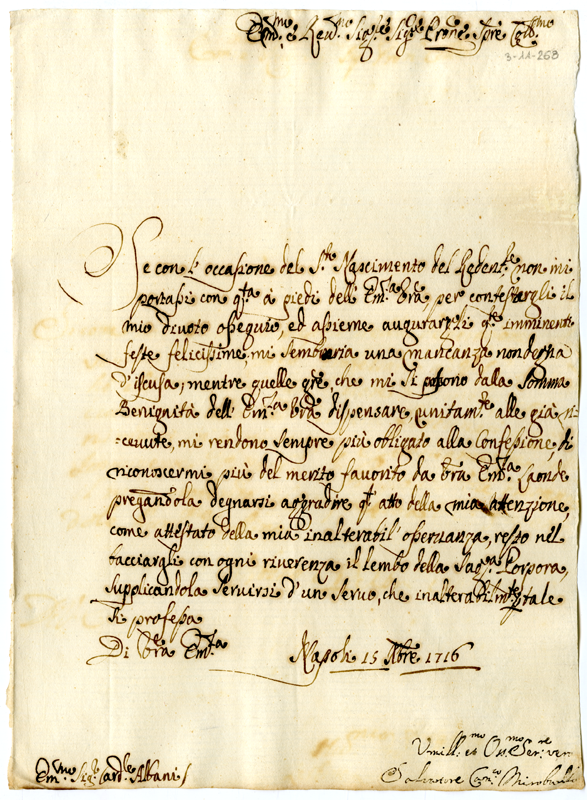 Em.mo e Rev.mo Sig.re Sig.re Prone Col.mo
3-11-268
Se con l'occasione del S.to Nascimento del Redent.re non mi
portassi con q.ta à piedi dell'Em.za Vra per contestargli il
mio divoto ossequio, ed assieme augurargli q.te imminenti
feste felicissime, mi sembraria una mancanza non degna
d'iscusa, mentre quelle gre, che mi si possono dalla Somma
Benignità dell'Em.za Vra dispensare, unitam.te alle già ri-
-cevute, mi rendono sempre più obligato alla Confessione, di
riconoscermi più del merito favorito da Vra Em.za Laonde
pregandola degnarsi aggradire q.l atto della mia attenzione,
come attestato della mia inalterabil' osservanza, resto nel
bacciargli con ogni riverenza il lembo della Sag.a Porpora,
supplicandola servirsi d'un servo, che inalterabilm.te tale
si professa
Di Vra Em.za
Napoli 15 Xbre 1716
Umill.mo et Oss.mo Ser.re vero
Salvatore
Em.mo Sig.r Card.le Albani